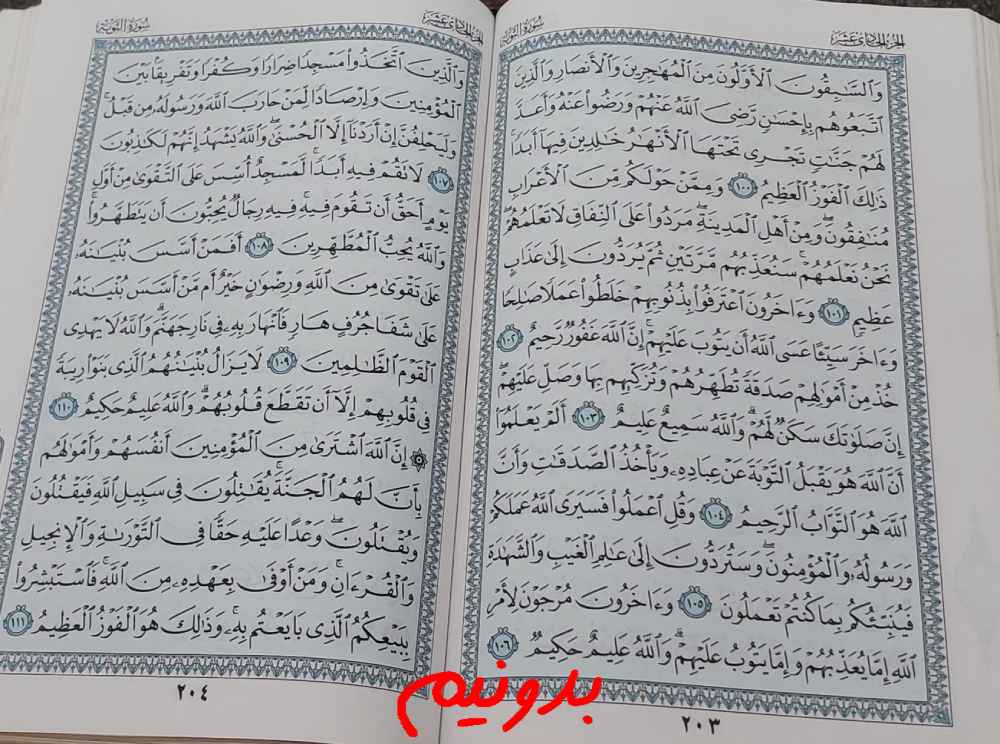 الجزء الحادي عشر سورة التوبة
وَٱلسَّٰبِقُونَ ٱلْأَوَّلُونَ مِنَ ٱلْمُهَٰجِرِينَ وَٱلْأَنصَارِ وَٱلَّذِينَ
ٱتَّبَعُوهُم بِإِحْسَٰنٍ رَّضِىَ ٱللَّهُ عَنْهُمْ وَرَضُوا۟ عَنْهُ وَأَعَدَّ
لَهُمْ جَنَّٰتٍ تَجْرِى تَحْتَهَا ٱلْأَنْهَٰرُ خَٰلِدِينَ فِيهَآ أَبَدًا ۚ
ذَٰلِكَ ٱلْفَوْزُ ٱلْعَظِيمُ ١٠٠ وَمِمَّنْ حَوْلَكُم مِّنَ ٱلْأَعْرَابِ
مُنَٰفِقُونَ ۖ وَمِنْ أَهْلِ ٱلْمَدِينَةِ ۖ مَرَدُوا۟ عَلَى ٱلنِّفَاقِ لَا تَعْلَمُهُمْ ۖ
نَحْنُ نَعْلَمُهُمْ ۚ سَنُعَذِّبُهُم مَّرَّتَيْنِ ثُمَّ يُرَدُّونَ إِلَىٰ عَذَابٍ
عَظِيمٍ ١٠١ وَءَاخَرُونَ ٱعْتَرَفُوا۟ بِذُنُوبِهِمْ خَلَطُوا۟ عَمَلًا صَٰلِحًا
وَءَاخَرَ سَيِّئًا عَسَى ٱللَّهُ أَن يَتُوبَ عَلَيْهِمْ ۚ إِنَّ ٱللَّهَ غَفُورٌ رَّحِيمٌ ١٠٢
خُذْ مِنْ أَمْوَٰلِهِمْ صَدَقَةً تُطَهِّرُهُمْ وَتُزَكِّيهِم بِهَا وَصَلِّ عَلَيْهِمْ ۖ
إِنَّ صَلَوٰتَكَ سَكَنٌ لَّهُمْ ۗ وَٱللَّهُ سَمِيعٌ عَلِيمٌ ١٠٣ أَلَمْ يَعْلَمُوٓا۟
أَنَّ ٱللَّهَ هُوَ يَقْبَلُ ٱلتَّوْبَةَ عَنْ عِبَادِهِۦ وَيَأْخُذُ ٱلصَّدَقَٰتِ وَأَنَّ
ٱللَّهَ هُوَ ٱلتَّوَّابُ ٱلرَّحِيمُ ١٠٤ وَقُلِ ٱعْمَلُوا۟ فَسَيَرَى ٱللَّهُ عَمَلَكُمْ
وَرَسُولُهُۥ وَٱلْمُؤْمِنُونَ ۖ وَسَتُرَدُّونَ إِلَىٰ عَٰلِمِ ٱلْغَيْبِ وَٱلشَّهَٰدَةِ
فَيُنَبِّئُكُم بِمَا كُنتُمْ تَعْمَلُونَ ١٠٥ وَءَاخَرُونَ مُرْجَوْنَ لِأَمْرِ
ٱللَّهِ إِمَّا يُعَذِّبُهُمْ وَإِمَّا يَتُوبُ عَلَيْهِمْ ۗ وَٱللَّهُ عَلِيمٌ حَكِيمٌ ١٠٦
٢٠٣
الجزء الحادي عشر سورة التوبة
وَٱلَّذِينَ ٱتَّخَذُوا۟ مَسْجِدًا ضِرَارًا وَكُفْرًا وَتَفْرِيقًۢا بَيْنَ
ٱلْمُؤْمِنِينَ وَإِرْصَادًا لِّمَنْ حَارَبَ ٱللَّهَ وَرَسُولَهُۥ مِن قَبْلُ ۚ
وَلَيَحْلِفُنَّ إِنْ أَرَدْنَآ إِلَّا ٱلْحُسْنَىٰ ۖ وَٱللَّهُ يَشْهَدُ إِنَّهُمْ لَكَٰذِبُونَ
١٠٧ لَا تَقُمْ فِيهِ أَبَدًا ۚ لَّمَسْجِدٌ أُسِّسَ عَلَى ٱلتَّقْوَىٰ مِنْ أَوَّلِ
يَوْمٍ أَحَقُّ أَن تَقُومَ فِيهِ ۚ فِيهِ رِجَالٌ يُحِبُّونَ أَن يَتَطَهَّرُوا۟ ۚ
وَٱللَّهُ يُحِبُّ ٱلْمُطَّهِّرِينَ ١٠٨ أَفَمَنْ أَسَّسَ بُنْيَٰنَهُۥ
عَلَىٰ تَقْوَىٰ مِنَ ٱللَّهِ وَرِضْوَٰنٍ خَيْرٌ أَم مَّنْ أَسَّسَ بُنْيَٰنَهُۥ
عَلَىٰ شَفَا جُرُفٍ هَارٍ فَٱنْهَارَ بِهِۦ فِى نَارِ جَهَنَّمَ ۗ وَٱللَّهُ لَا يَهْدِى
ٱلْقَوْمَ ٱلظَّٰلِمِينَ ١٠٩ لَا يَزَالُ بُنْيَٰنُهُمُ ٱلَّذِى بَنَوْا۟ رِيبَةً
فِى قُلُوبِهِمْ إِلَّآ أَن تَقَطَّعَ قُلُوبُهُمْ ۗ وَٱللَّهُ عَلِيمٌ حَكِيمٌ ١١٠
۞ إِنَّ ٱللَّهَ ٱشْتَرَىٰ مِنَ ٱلْمُؤْمِنِينَ أَنفُسَهُمْ وَأَمْوَٰلَهُم
بِأَنَّ لَهُمُ ٱلْجَنَّةَ ۚ يُقَٰتِلُونَ فِى سَبِيلِ ٱللَّهِ فَيَقْتُلُونَ
وَيُقْتَلُونَ ۖ وَعْدًا عَلَيْهِ حَقًّا فِى ٱلتَّوْرَىٰةِ وَٱلْإِنجِيلِ
وَٱلْقُرْءَانِ ۚ وَمَنْ أَوْفَىٰ بِعَهْدِهِۦ مِنَ ٱللَّهِ ۚ فَٱسْتَبْشِرُوا۟
بِبَيْعِكُمُ ٱلَّذِى بَايَعْتُم بِهِۦ ۚ وَذَٰلِكَ هُوَ ٱلْفَوْزُ ٱلْعَظِيمُ ١١١
٢٠٤
بدونیم